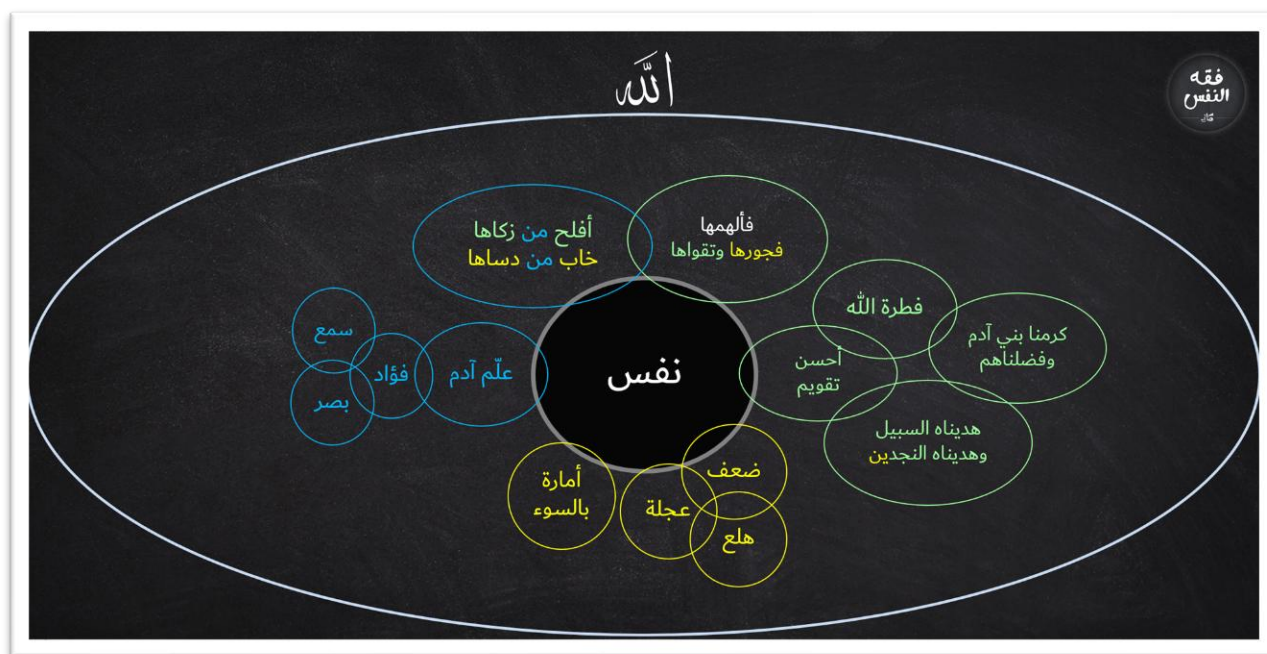 الله
فقه
النفس
فألهمها
فجورها وتقواها
أفلح من زكاها
خاب من دساها
فطرة الله
كرمنا بني آدم
وفضلناهم
أحسن
تقويم
هديناه السبيل
وهديناه النجدين
نفس
علّم آدم
فؤاد
سمع
بصر
ضعف
عجلة
هلع
أمارة
بالسوء